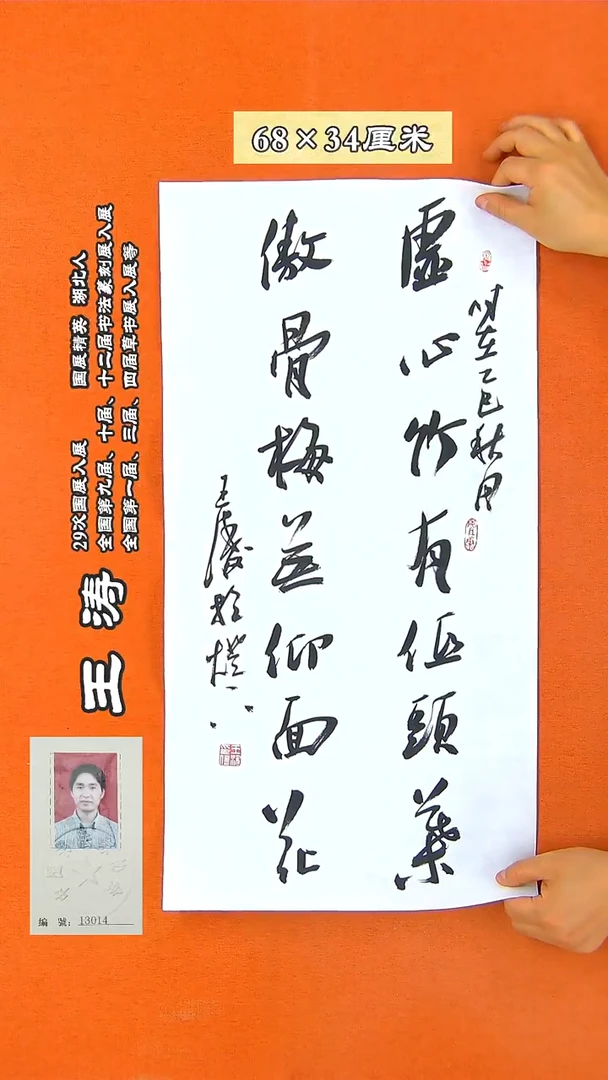 68×34厘米
时在乙巳秋月
虛心竹有低頭葉
傲骨梅無仰面花
王涛於
王涛
29次国展入展 国展精英 湖北人
全国第九届、十届、十二届书法篆刻展入展
全国第一届、三届、四届草书展入展等
编 號: 13014